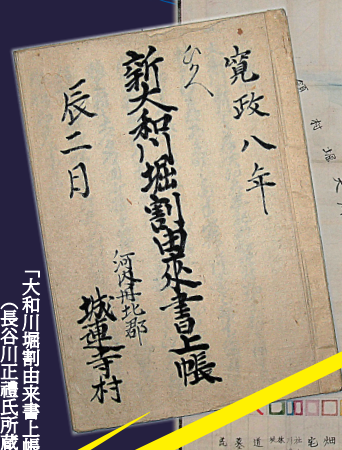 寛政八年
ひかへ
新大和川堀割由来書上帳
辰二月
河内丹北郡
城連寺村
「大和川堀割由来書上帳
(長谷川正禮氏)所蔵
畑
宅
社
川
林
道
墓